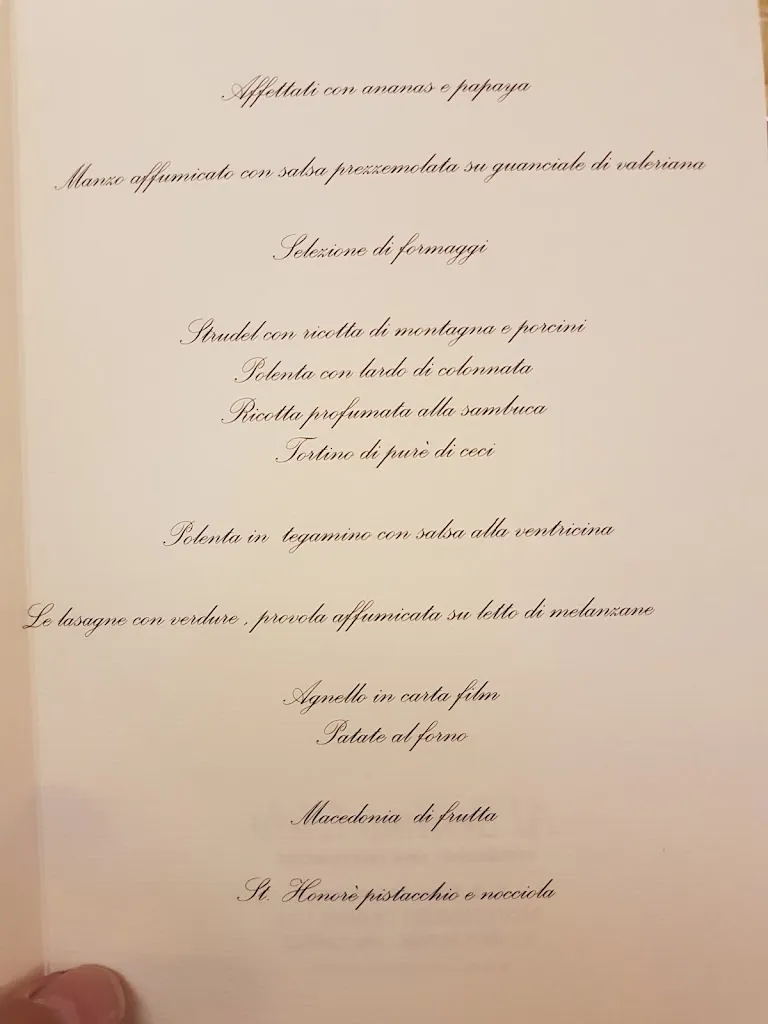 Affettati con ananas e papaya
Manzo affumicato con salsa prezzemolata su guanciale di valeriana
Selezione di formaggi
Strudel con ricotta di montagna e porcini
Polenta con lardo di colonnata
Ricotta profumata alla sambuca
Tortino di purè di ceci
Polenta in tegamino con salsa alla ventricina
Le lasagne con verdure , provola affumicata su letto di melanzane
Agnello in carta film
Patate al forno
Macedonia di frutta
St. Honorè pistacchio e nocciola